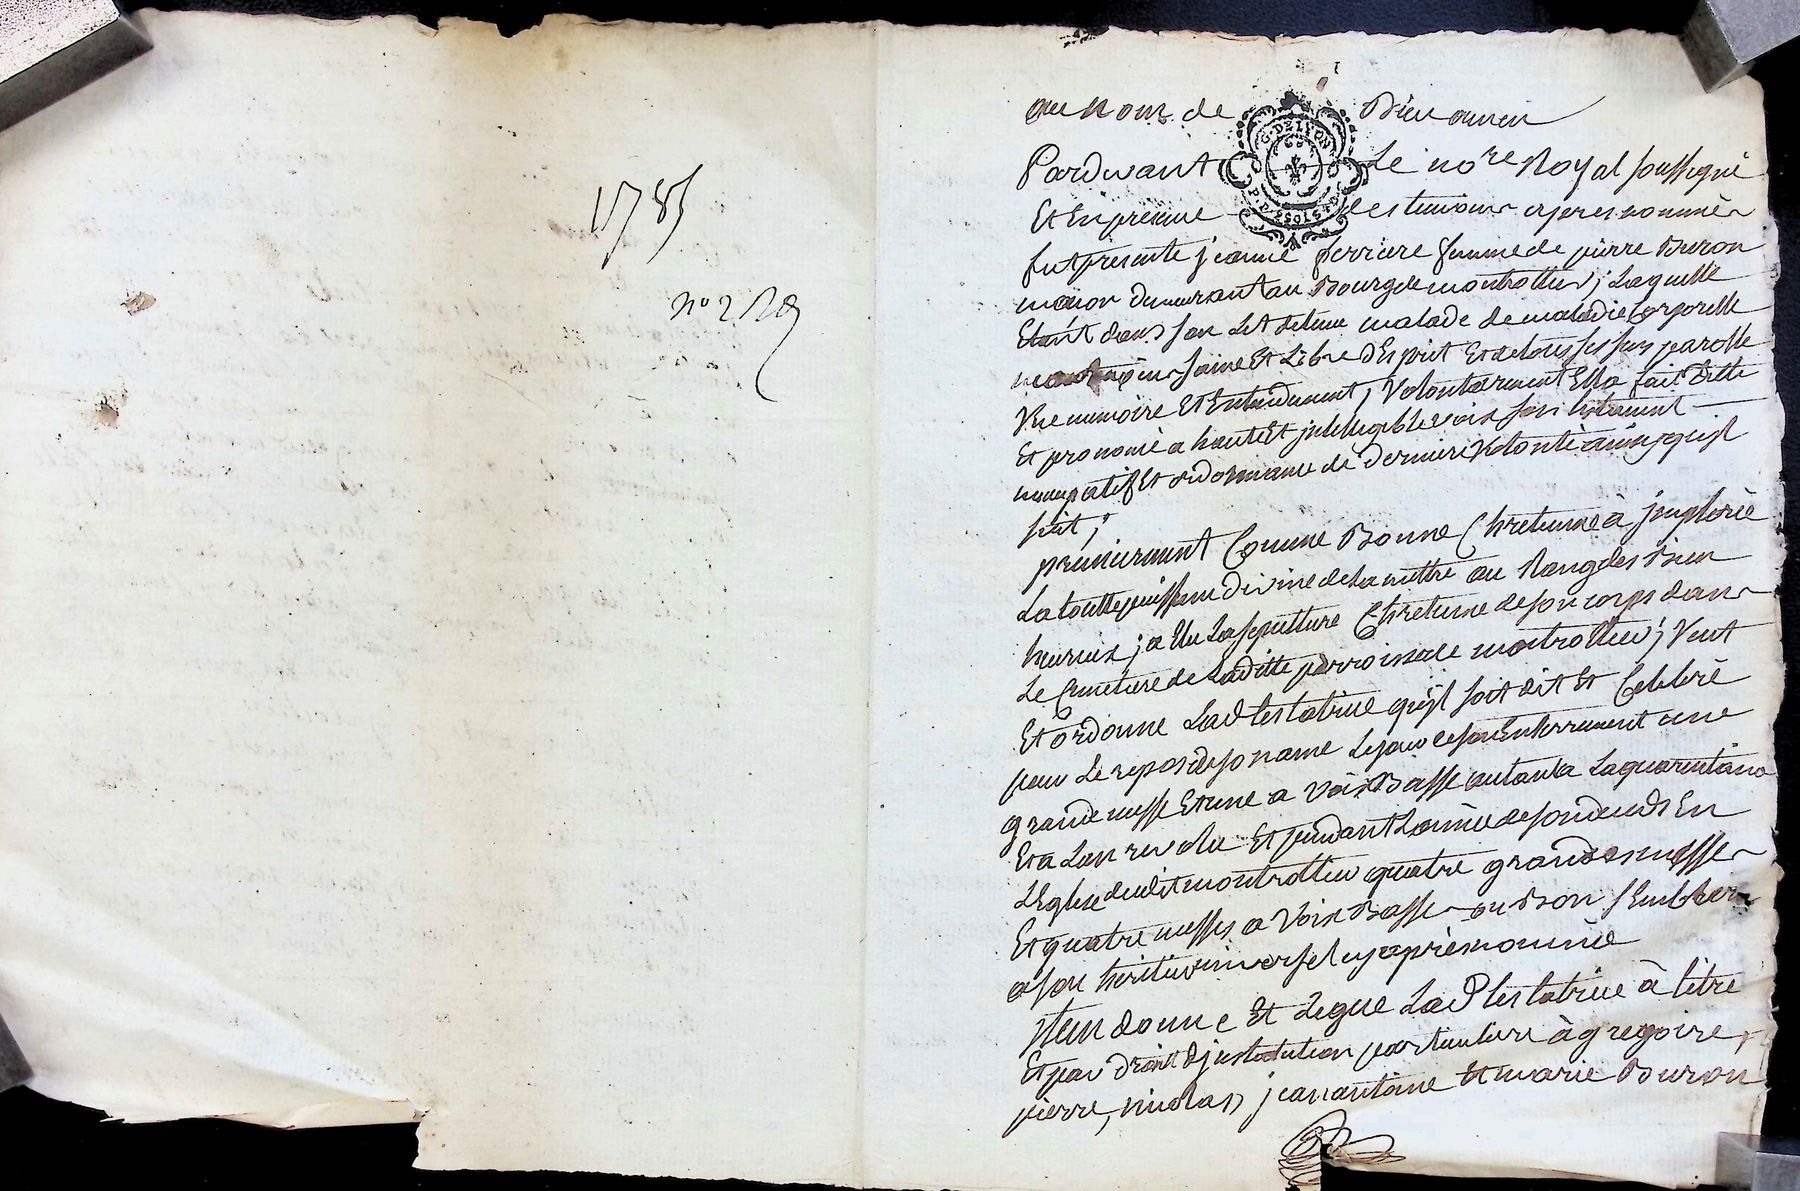 1785
n° 2
au nom de Dieu amen
G. DE LYON
Pardevant Le no.re Royal soussigné
Et En presence des temoins cy apres nommés
fut presente jeanne ferriere femme de pierre Buron
maçon demeurant au Bourg de montrottier; Laquelle
Etant dans son Lit detenue malade de maladie Corporelle
saine Et Libre d'Esprit Et de tous ses sens parolle
Vue memoire Et Entendement, Volontairement Ella fait Ditte
Et prononcé a haute Et jntelligible voix son testament
nuncupatif Et ordonnance de derniere Volonté ainsy qu'jl
suit;
premierement Comme Bonne Chretienne à jmploré
La toutte puissance divine de La mettre au Rang des Bien
heureux; a Elu La sepulture Chretienne de son corps dans
Le Cimetiere de Laditte parroisse de montrottier; Veut
Et ordonne Lad testatrice qu'jl soit dit Et Celebré
pour Le repos de son ame Le jour de son Enterrement une
grande messe Et une a Voix Basse autant a La quarantaine
Et a L'an revolu Et pendant L'année de son deceds En
L'Eglise dudit montrottier quatre grandes messes
Et quatre messes a Voix Basse ou Bon semblera
a son heritier universel cy apres nommée
jtem donne Et Legue Lad testatrice à titre
Et par droit d'jnstitution particuliere à gregoire,
pierre, nicolas, jean antoine Et marie Buron